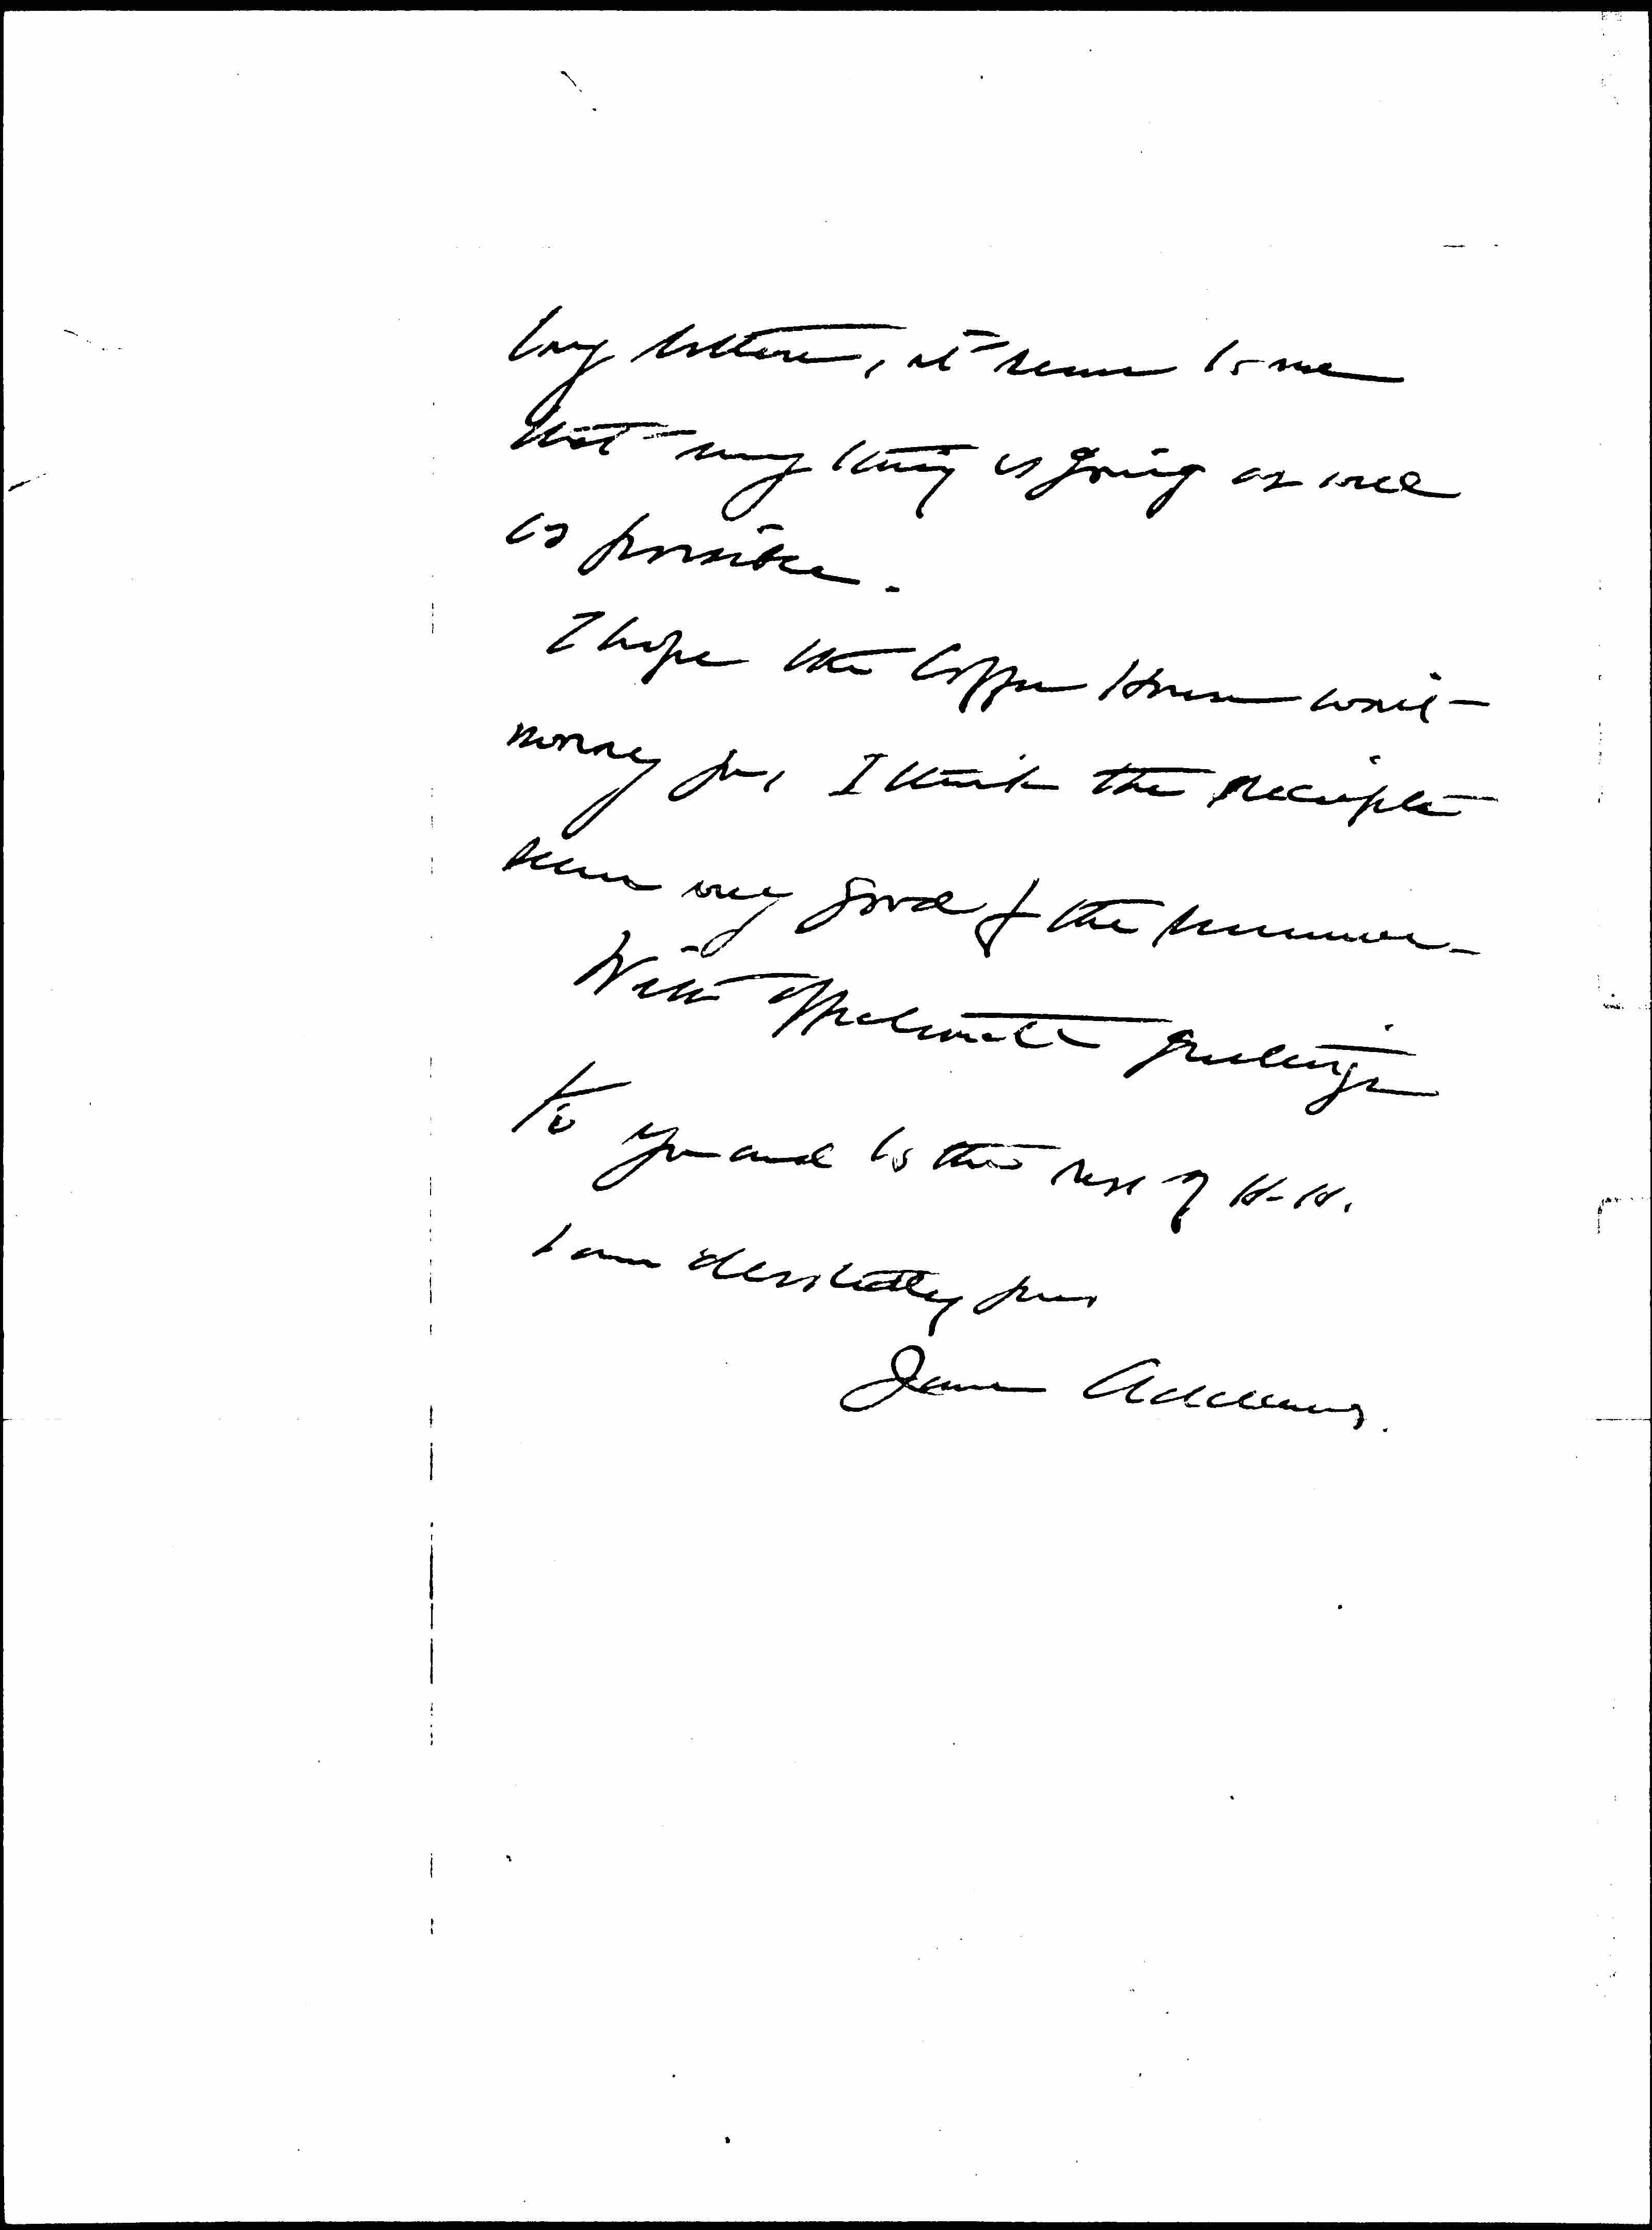 long letters, it seems to me
that every thing is going as well
as possible.
I hope the Coffee House won't
worry you, I think the receipts
seem very good for the summer.
With affectionate greetings
to you and to the rest of H-H.
I am devotedly yours
Jane Addams.